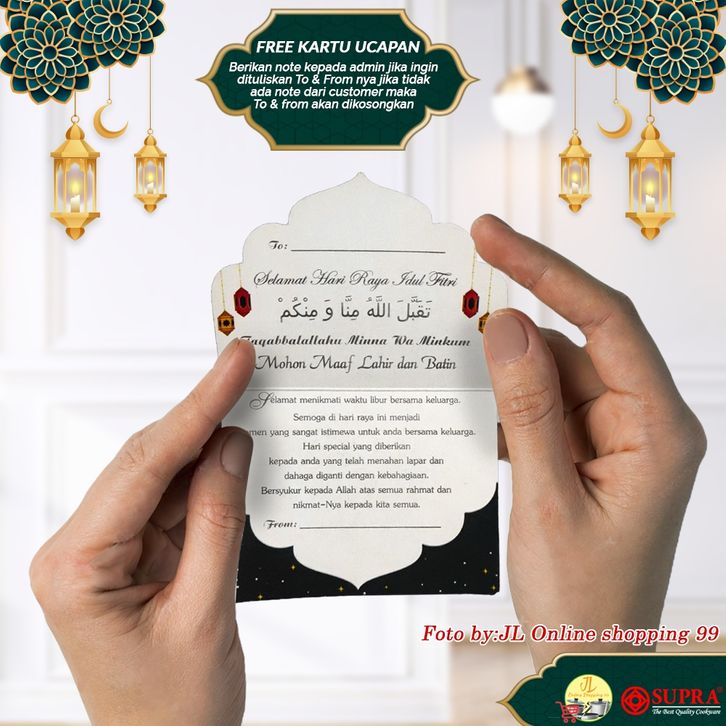 FREE KARTU UCAPAN
Berikan note kepada admin jika ingin
dituliskan To & From nya jika tidak
ada note dari customer maka
To & from akan dikosongkan
To:
Selamat Hari Raya Idul Fitri
تَقَبَّلَ اللَّهُ مِنَّا وَ مِنْكُمْ
Taqabbalallahu Minna Wa Minkum
Mohon Maaf Lahir dan Batin
Selamat menikmati waktu libur bersama keluarga.
Semoga di hari raya ini menjadi
men yang sangat istimewa untuk anda bersama keluarga.
Hari special yang diberikan
kepada anda yang telah menahan lapar dan
dahaga diganti dengan kebahagiaan.
Bersyukur kepada Allah atas semua rahmat dan
nikmat-Nya kepada kita semua.
From:
Foto by:JL Online shopping 99
JL
Online Shopping 99
SUPRA
The Best Quality Cookware